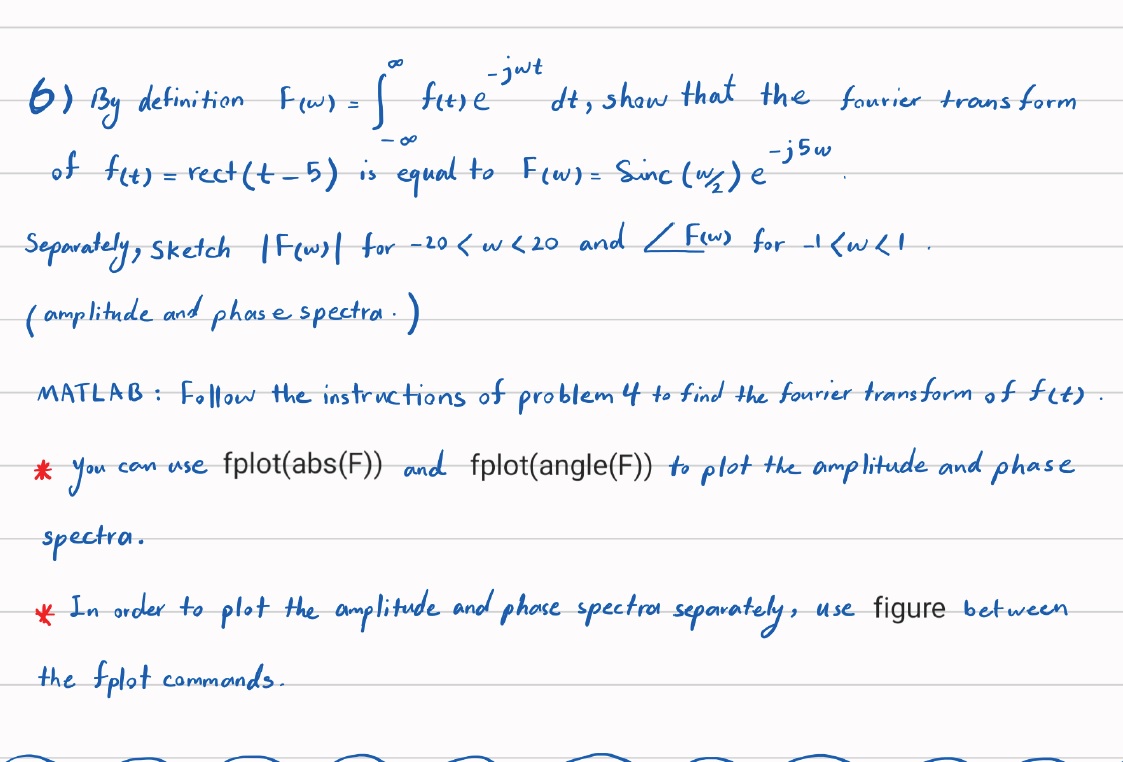 6) By definition F(w) = ∫_{-∞}^{∞} f(t) e^{-jwt} dt, show that the fourier transform
of f(t) = rect(t-5) is equal to F(w) = Sinc(w/2) e^{-j5w}.
Separately, sketch |F(w)| for -20 < w < 20 and ∠F(w) for -1 < w < 1.
(amplitude and phase spectra.)
MATLAB: Follow the instructions of problem 4 to find the fourier transform of f(t).
* you can use fplot(abs(F)) and fplot(angle(F)) to plot the amplitude and phase
spectra.
* In order to plot the amplitude and phase spectra separately, use figure between
the fplot commands.